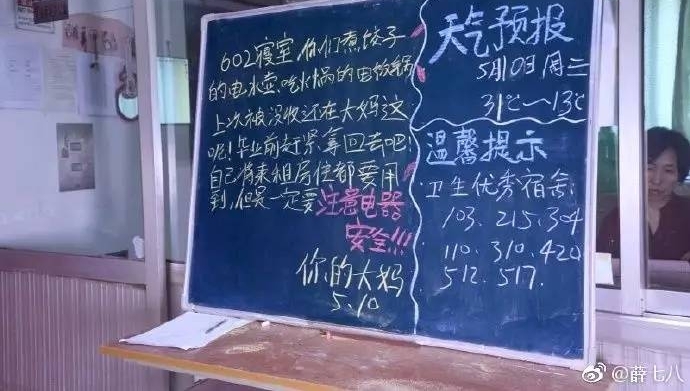 602寝室 你们煮饺子
的电水壶,吃火锅的电饭锅
上次被没收还在大妈这
呢!毕业前赶紧拿回去吧!
自己将来租房住都要用
到,但是一定要注意电器
安全!!!
你的大妈
5.10
天气预报
5月10日 周二
31℃~13℃
温馨提示
卫生优秀宿舍:
103.215.304
110.310.420
512.517.
@薛七八